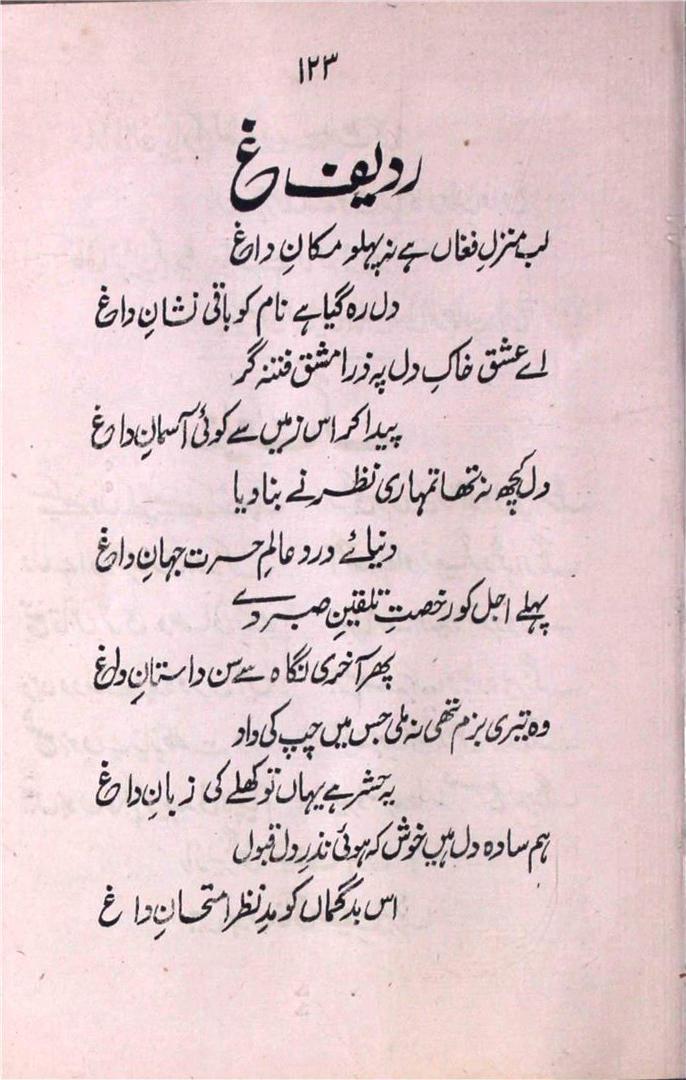 ۱۲۳
ردیف غ
لب منزلِ فغاں ہے نہ پہلو مکانِ داغ
دل رہ گیا ہے نام کو باقی نشانِ داغ
اے عشق خاکِ دل پہ ذرا مشقِ فتنہ گر
پیدا کر اس زمیں سے کوئی آسمانِ داغ
دل کچھ نہ تھا تمہاری نظر نے بنا دیا
دنیائے درد عالمِ حسرت جہانِ داغ
پہلے اجل کو رخصتِ تلقینِ صبر دے
پھر آخری نگاہ سے سن داستانِ داغ
وہ تیری بزم تھی نہ ملی جس میں چپ کی داد
یہ حشر ہے یہاں تو کھلے کی زبانِ داغ
ہم سادہ دل ہیں خوش کہ ہوئی نذرِ دل قبول
اس بدگماں کو مدِ نظر امتحانِ داغ